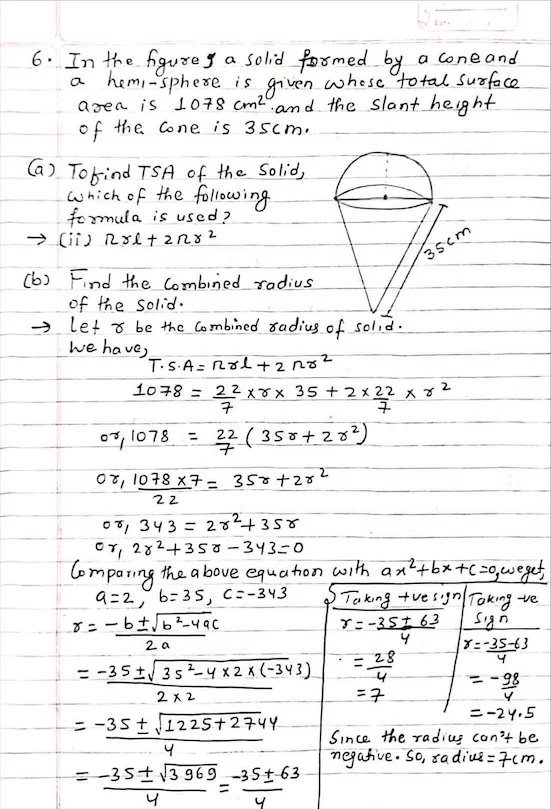 6. In the figure, a solid formed by a cone and
a hemi-sphere is given whose total surface
area is 1078 cm² and the slant height
of the cone is 35cm.
(a) To find TSA of the Solid,
which of the following
formula is used?
→ (ii) πrl + 2πr²
35cm
(b) Find the combined radius
of the solid.
→ Let r be the combined radius of solid.
We have,
T.S.A = πrl + 2πr²
1078 = 22/7 × r × 35 + 2 × 22/7 × r²
or, 1078 = 22/7 (35r + 2r²)
or, 1078 × 7/22 = 35r + 2r²
or, 343 = 2r² + 35r
or, 2r² + 35r - 343 = 0
Comparing the above equation with ax² + bx + c = 0, we get,
a = 2, b = 35, c = -343
r = -b ± √b² - 4ac / 2a
= -35 ± √35² - 4 × 2 × (-343) / 2 × 2
= -35 ± √1225 + 2744 / 4
= -35 ± √3969 / 4 = -35 ± 63 / 4
Taking +ve sign
r = -35 ± 63 / 4
= 28/4
= 7
Taking -ve
sign
r = -35 - 63 / 4
= -98/4
= -24.5
Since the radius can't be
negative. So, radius = 7cm.